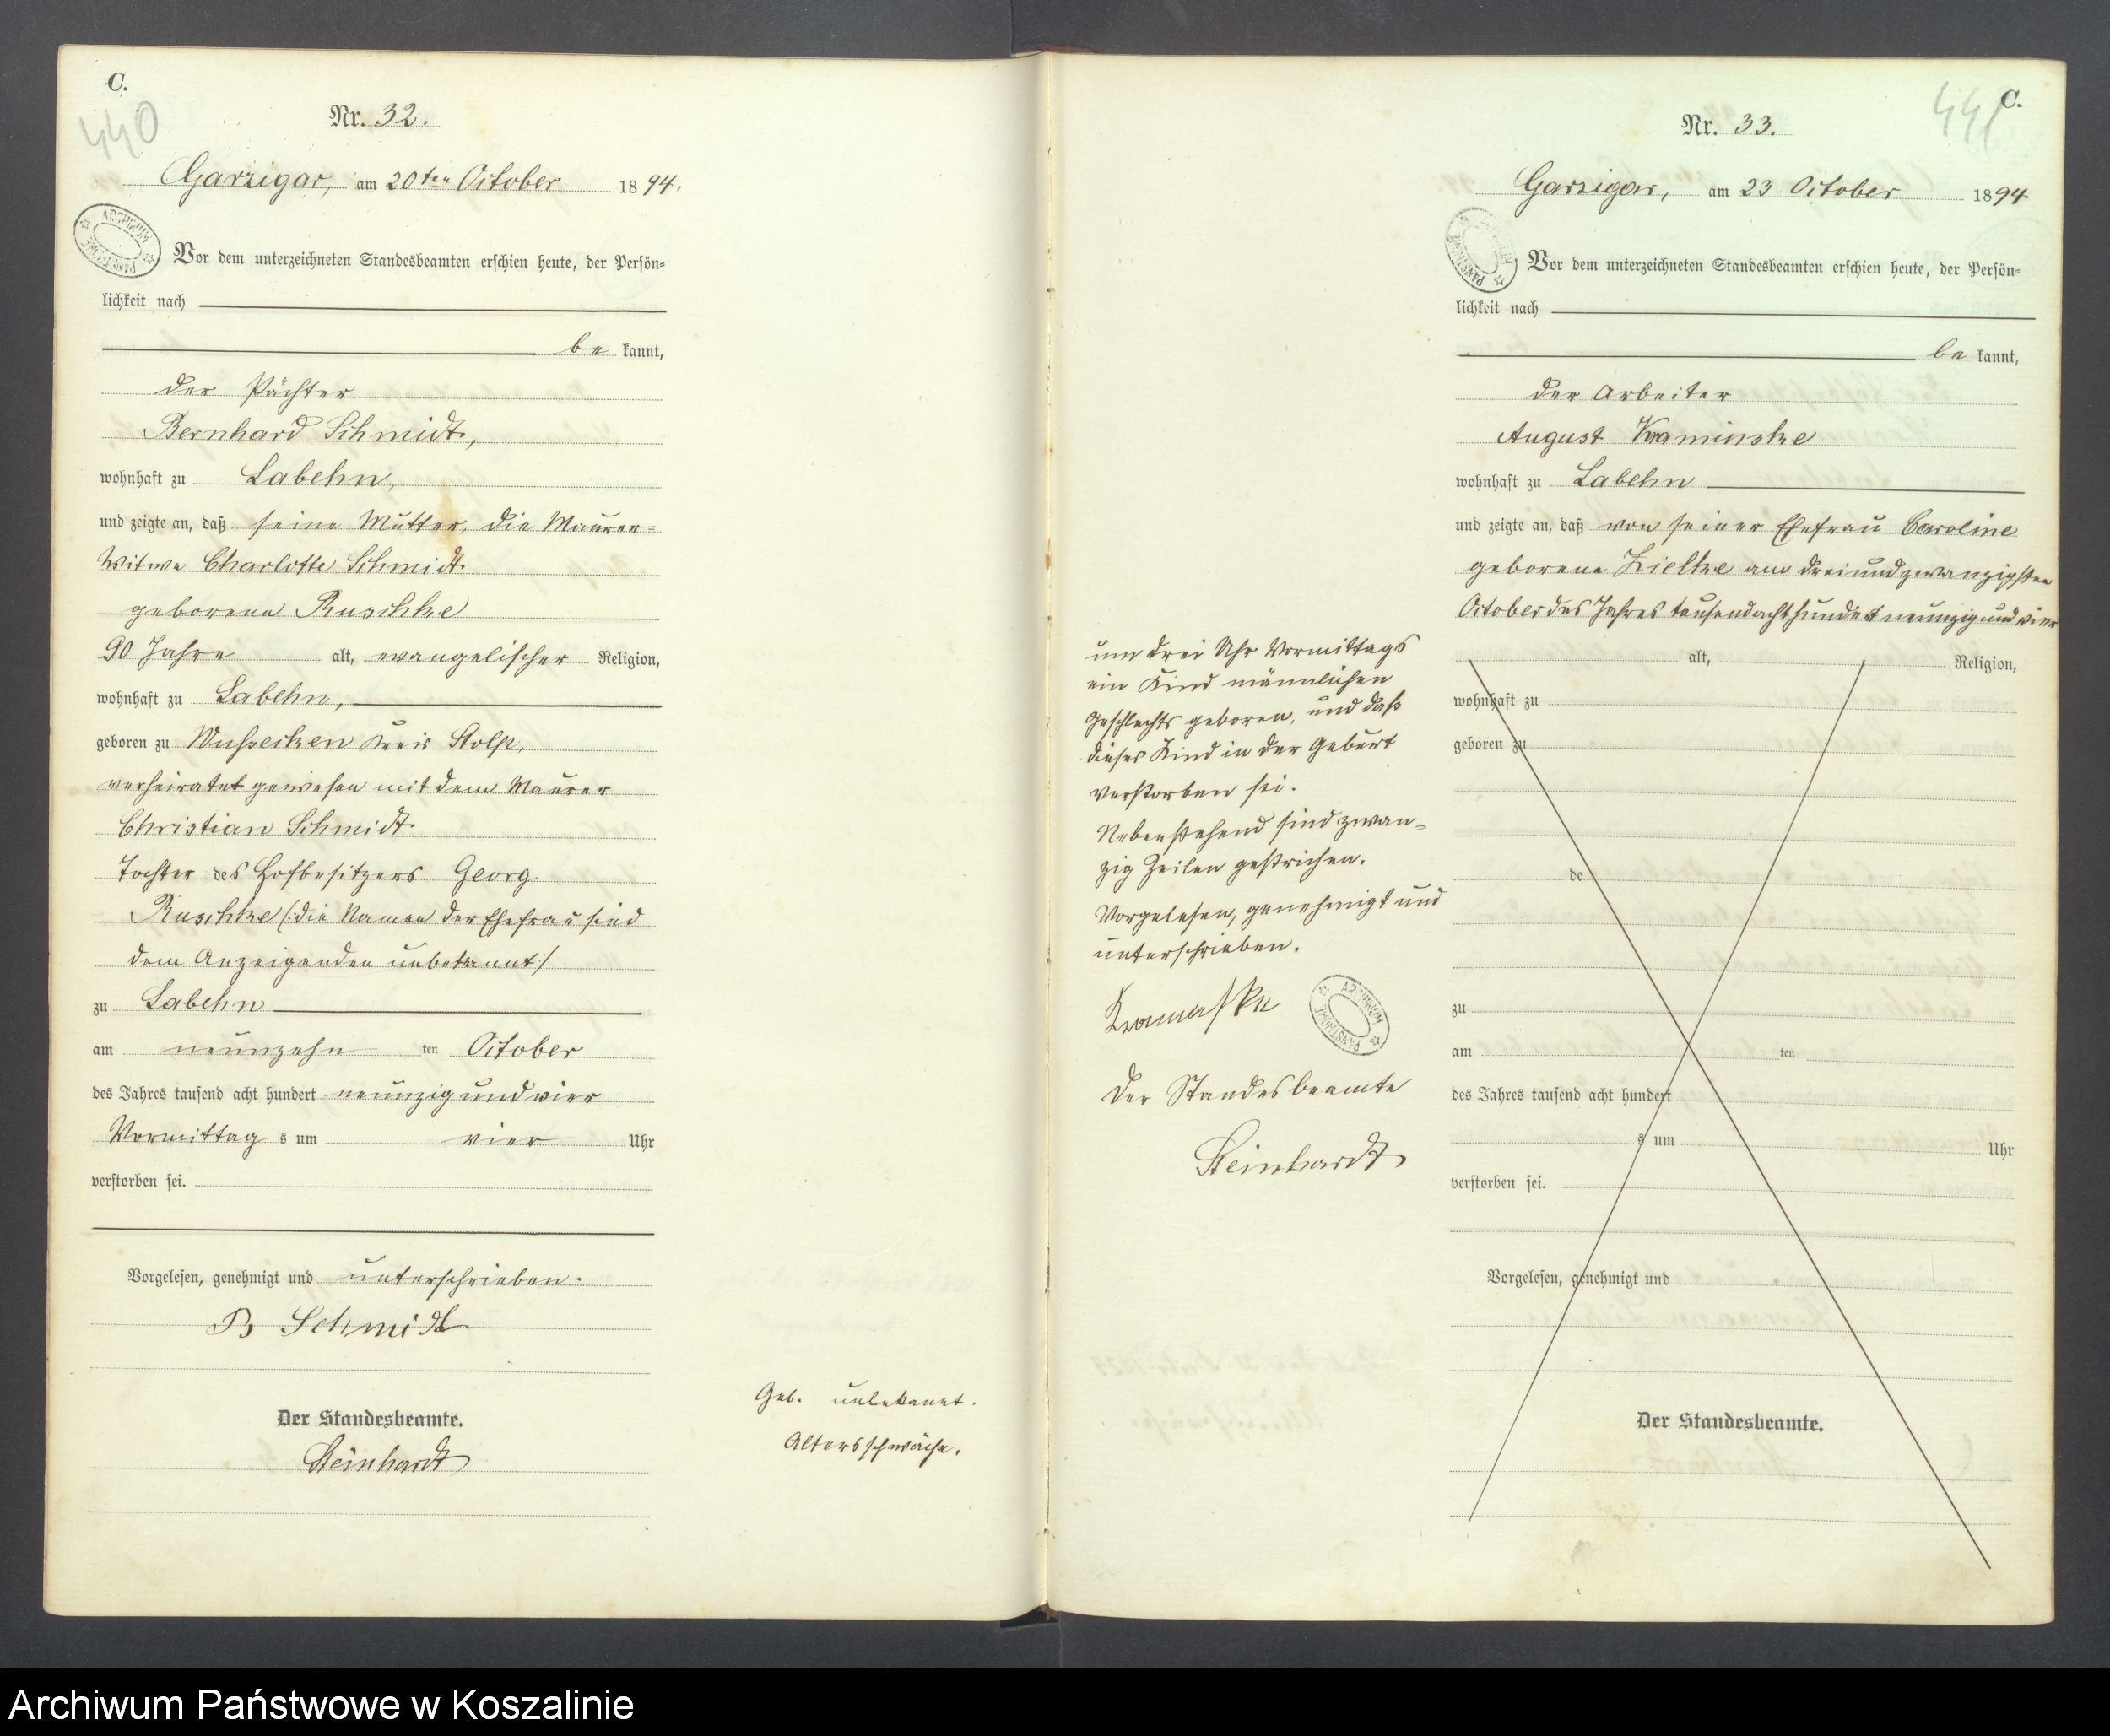 C.
440
Nr. 32.
Garzigar, am 20ten October 1894.
Vor dem unterzeichneten Standesbeamten erschien heute, der Persön=
lichkeit nach
be kannt,
der Pächter
Bernhard Schmidt,
wohnhaft zu Labehn,
und zeigte an, daß seine Mutter, die Maurer=
Witwe Charlotte Schmidt
geborene Ruschke
90 Jahre alt, evangelischer Religion,
wohnhaft zu Labehn,
geboren zu Wussecken Kreis Stolp,
verheiratet gewesen mit dem Maurer
Christian Schmidt
Tochter des Hofbesitzers Georg
Ruschke /: die Namen der Ehefrau sind
dem Anzeigenden unbekannt :/
zu Labehn
am neunzehn ten October
des Jahres tausend acht hundert neunzig und vier
Vormittag s um vier Uhr
verstorben sei.
Vorgelesen, genehmigt und unterschrieben.
B Schmidt
Der Standesbeamte.
Steinhardt
Geb. unbekannt.
Altersschwäche.
ARCHIWUM PAŃSTWOWE
C.
441
Nr. 33.
Garzigar, am 23 October 1894
Vor dem unterzeichneten Standesbeamten erschien heute, der Persön=
lichkeit nach
be kannt,
der Arbeiter
August Kraminske
wohnhaft zu Labehn
und zeigte an, daß von seiner Ehefrau Caroline
geborene Zielke am dreiundzwanzigsten
October des Jahres tausendachthundert neunzig und vier
um drei Uhr Vormittags
ein Kind männlichen
Geschlechts geboren, und daß
dieses Kind in der Geburt
verstorben sei.
Nebenstehend sind zwan=
zig Zeilen gestrichen.
Vorgelesen, genehmigt und
unterschrieben.
ARCHIWUM PAŃSTWOWE
Der Standesbeamte
Steinhardt
alt, Religion,
wohnhaft zu
geboren zu
de
zu
am ten
des Jahres tausend acht hundert
s um Uhr
verstorben sei.
Vorgelesen, genehmigt und
Der Standesbeamte.
ARCHIWUM PAŃSTWOWE
Archiwum Państwowe w Koszalinie